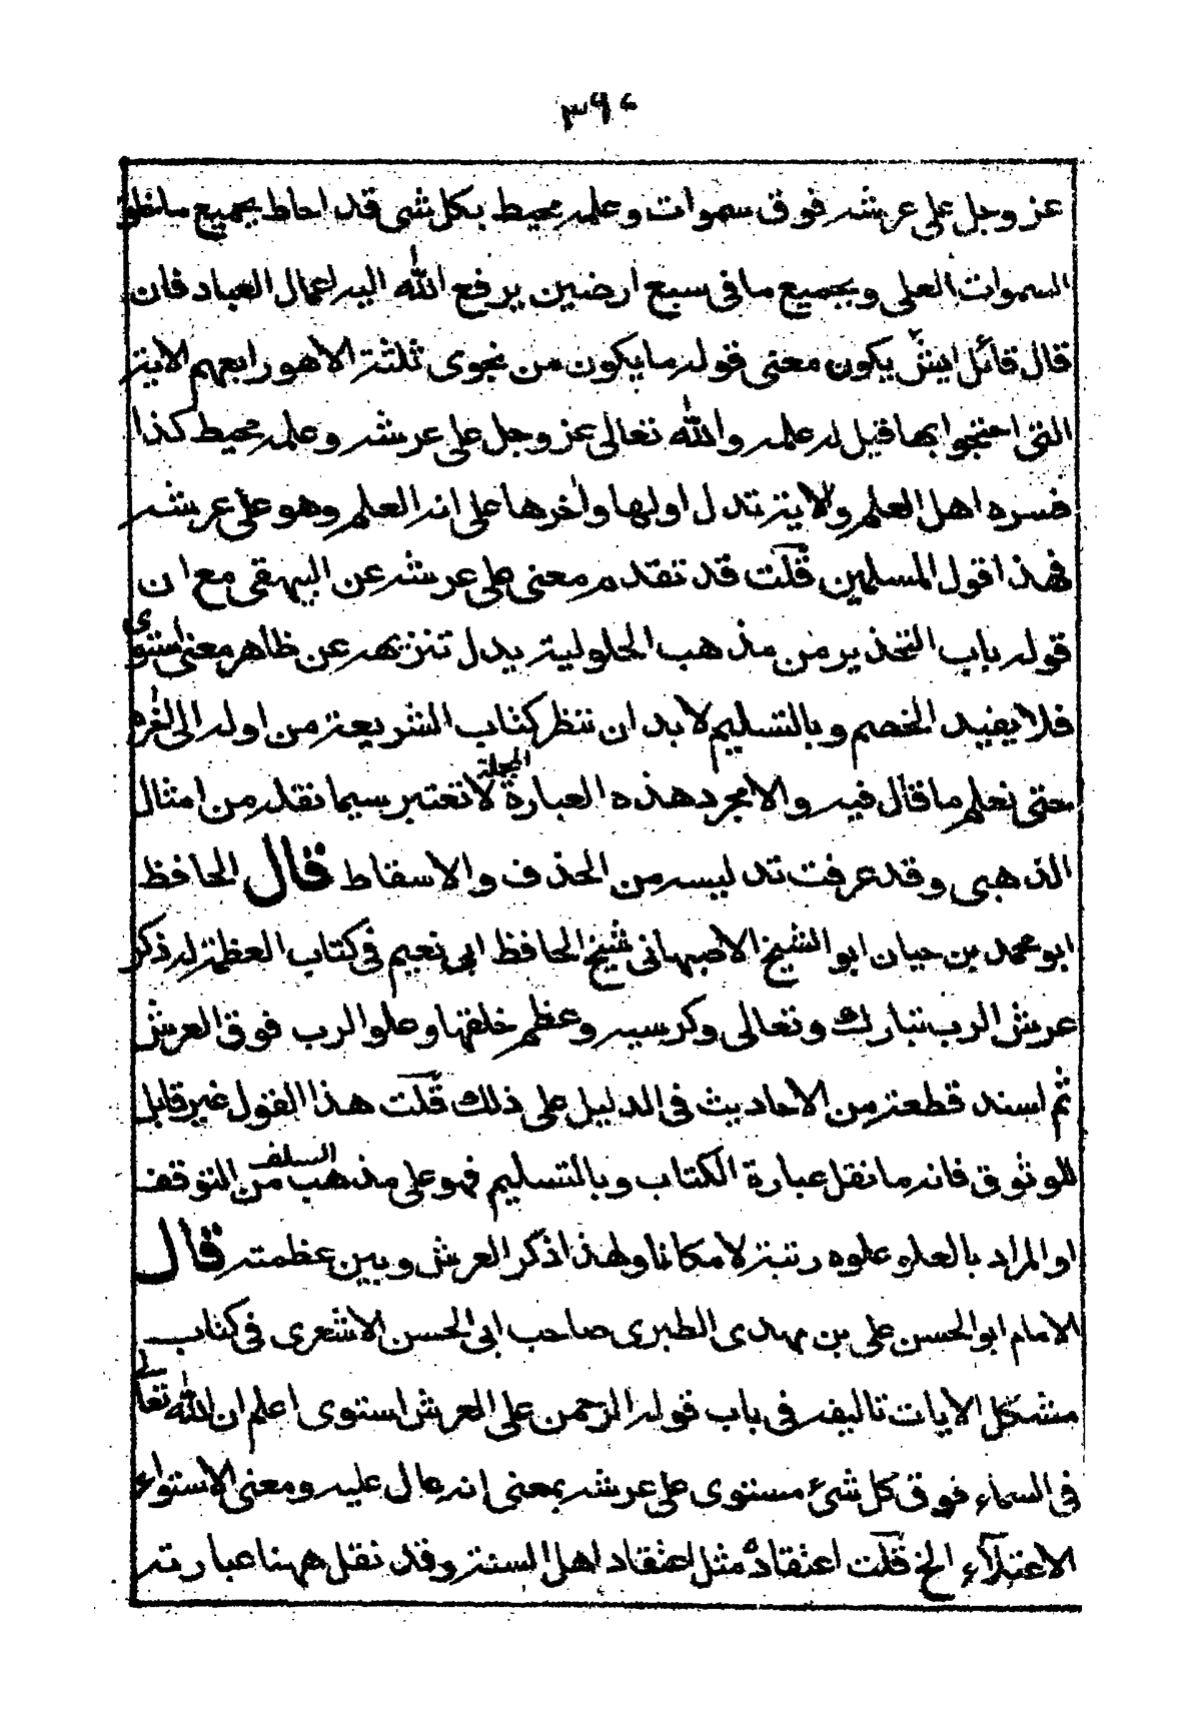 ٣٩٠
عز وجل على عرشه فوق سموات وعلمه محيط بكل شى قد احاط بجميع ماخلق
السموات العلى وبجميع مافى سبع ارضين يرفع الله اليه اعمال العباد فان
قال قائل ايش يكون معنى قوله مايكون من نجوى ثلثة الاهو رابعهم الاية
التى احتجوا بها قيل له علمه والله تعالى عز وجل على عرشه وعلمه محيط كذا
فسره اهل العلم والاية تدل اولها واٰخرها على انه العلم وهو على عرشه
فهذا قول المسلمين قلت قد تقدم معنى على عرشه عن البيهقى مع ان
قوله باب التحذير من مذهب الحلولية يدل تنزيهه عن ظاهر معنى استوى
فلايفيد الخصم وبالتسليم لابد ان ننظر كتاب الشريعة من اوله الى اٰخره
حتى نعلم ماقال فيه والامجرد هذه العبارة المجملة لاتعتبر سيما نقله من امثال
الذهبى وقد عرفت تدليسه من الحذف والاسقاط قال الحافظ
ابو محمد بن حيان ابو الشيخ الاصبهانى شيخ الحافظ ابى نعيم فى كتاب العظمة له ذكر
عرش الرب تبارك وتعالى وكرسيه وعظم خلقها وعلو الرب فوق العرش
ثم اسند قطعة من الاحاديث فى الدليل على ذلك قلت هذا القول غير قابل
للوثوق فانه مانقل عبارة الكتاب وبالتسليم فهو على مذهب السلف من التوقف
او المراد بالعلو علوه رتبة لامكانا ولهذا ذكر العرش وبين عظمته قال
الامام ابو الحسن على بن مهدى الطبرى صاحب ابى الحسن الاشعرى فى كتاب
مشكل الايات تاليفه فى باب قوله الرحمن على العرش استوى اعلم ان الله تعالى
فى السماء فوق كل شئ مستوى على عرشه بمعنى انه عال عليه ومعنى الاستواء
الاعتلاء الخ قلت اعتقاده مثل اعتقاد اهل السنة وقد نقل ههنا عبارته